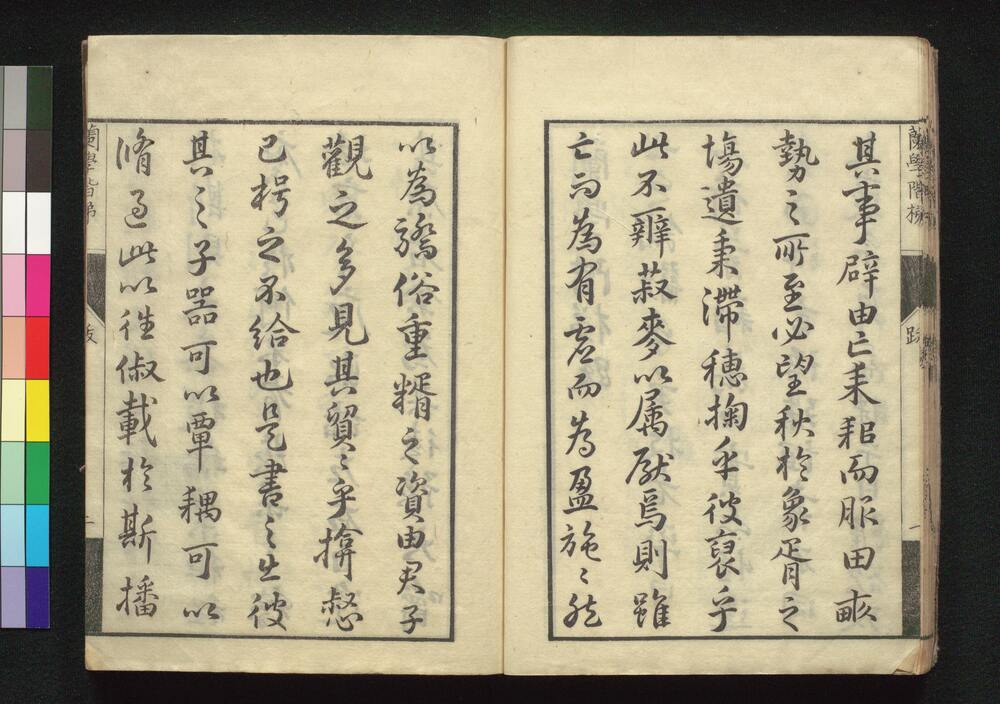 其事辟由亡耒耜而服田畝
勢之所至必望秋於象胥之
場遺秉滯穗掬乎彼裒乎
此不辨菽麥以属厭焉則雖
亡而為有虚而為盈施〻然
以為驕俗重糈之資由君子
觀之多見其貿〻乎搰
已枵之不給也是書之出彼
其之子器可以覃耦可以
脩這此以往俶載於斯播
蘭學階梯
跋
一
蘭學階梯
跋
二